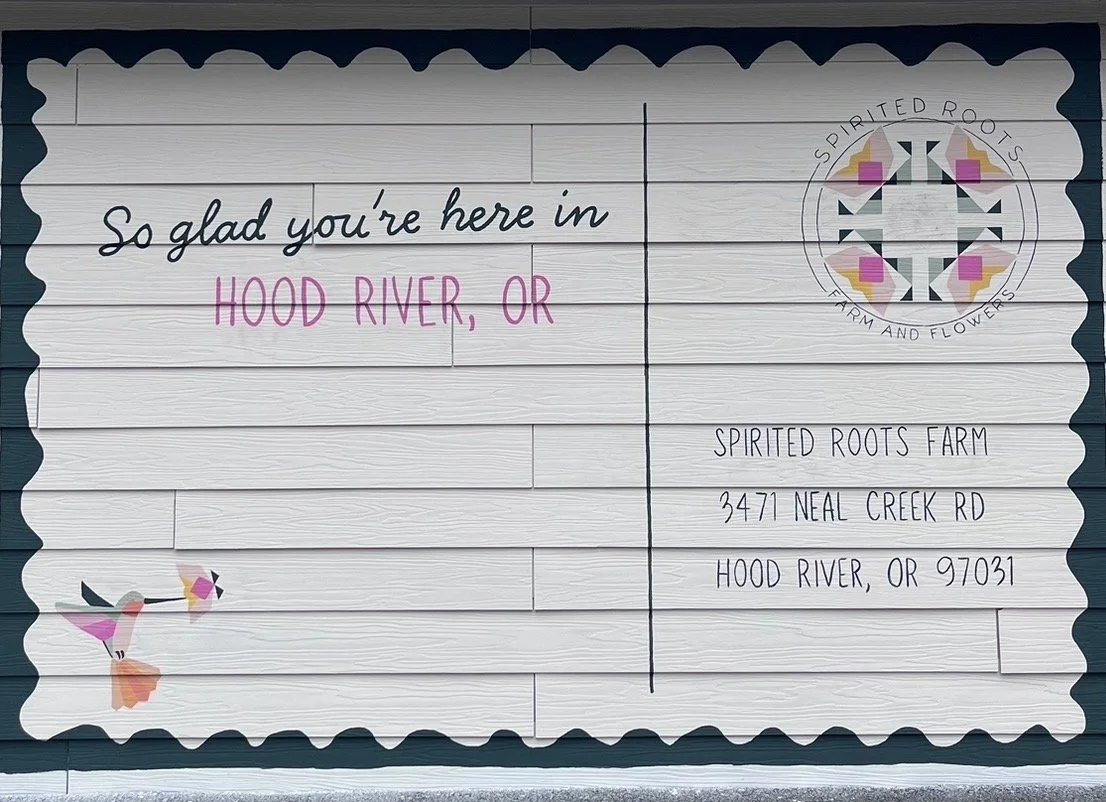 So glad you're here in
HOOD RIVER, OR
SPIRITED ROOTS
FARM AND FLOWERS
SPIRITED ROOTS FARM
3471 NEAL CREEK RD
HOOD RIVER, OR 97031